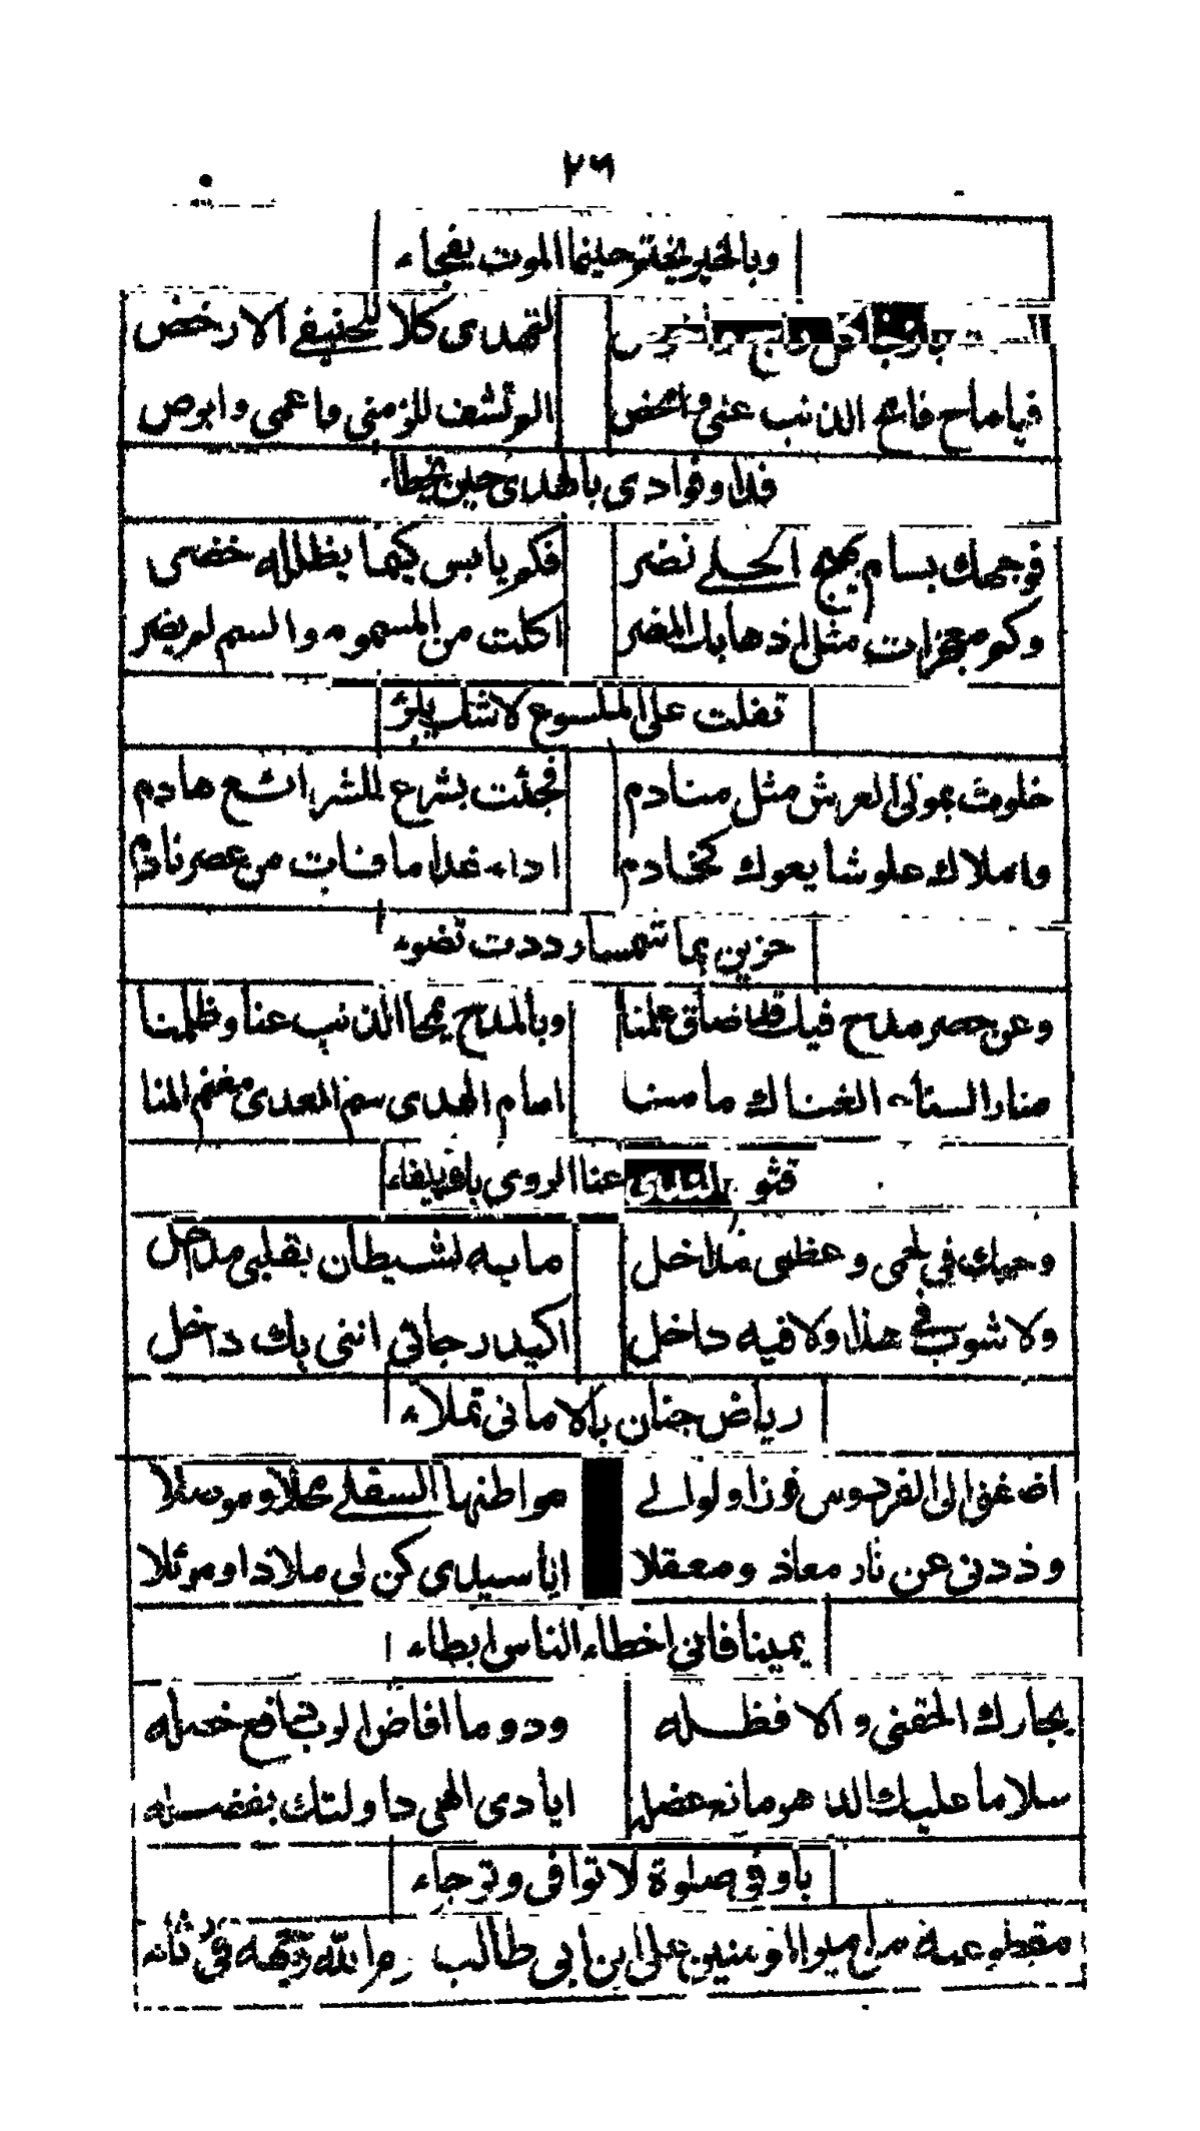 ٢٦
وبالخير يختم حينما الموت يفجاء
لتهدى كلا للحنيفي الارخض
فيا ماح فامح الذنب عني وامحض
الم تشف للزمنى وما عمى وابرص
فداو فوادى بالهدى حين يخطاء
فوجهك بسام بهيج الحلي نضر
فكم يابس كيما يظلله خضر
وكم معجزات مثل اذهابك المضر
اكلت من المسمومه والسم لم يضر
تفلت على الملسوع لا شك يبرؤ
خلوت بمولى العرش مثل منادم
فجئت بشرع للشرائع هادم
واملاك علو شايعوك كخادم
اداء غدا ما فات من عصر نادم
حزين بما شمسا رددت تضوء
وعن حصر مدح فيك قد ضاق علمنا
وبالمدح يمحا الذنب عنا وظلمنا
منار السناء الغناك ما مسنا
امام الهدى سم العدى مغنم المنا
عنا الروى
وحبك في لحمى وعظمى مداخل
ما به لشيطان بقلبى مدخل
ولا شوب في هذا ولا فيه داخل
اكيد رجائى اننى بك داخل
رياض جنان بالامانى تملاء
اضفنى الى الفردوس فوزا ولوالي
مواطنها السفلي محلا وموصلا
وذدنى عن نار معاذ ومعقلا
ايا سيدى كن لى ملاذا وموئلا
يمينا فانى اخطاء الناس ابطاء
بجارك المقفى والا فظله
ودوما افاض الرب
سلاما عليك الدهر مانع عضله
ايادى الهى داولتك بفضله
باوفى صلوة لا توافى وترجاء
مقطوعة من امير المؤمنين على ابن ابى طالب